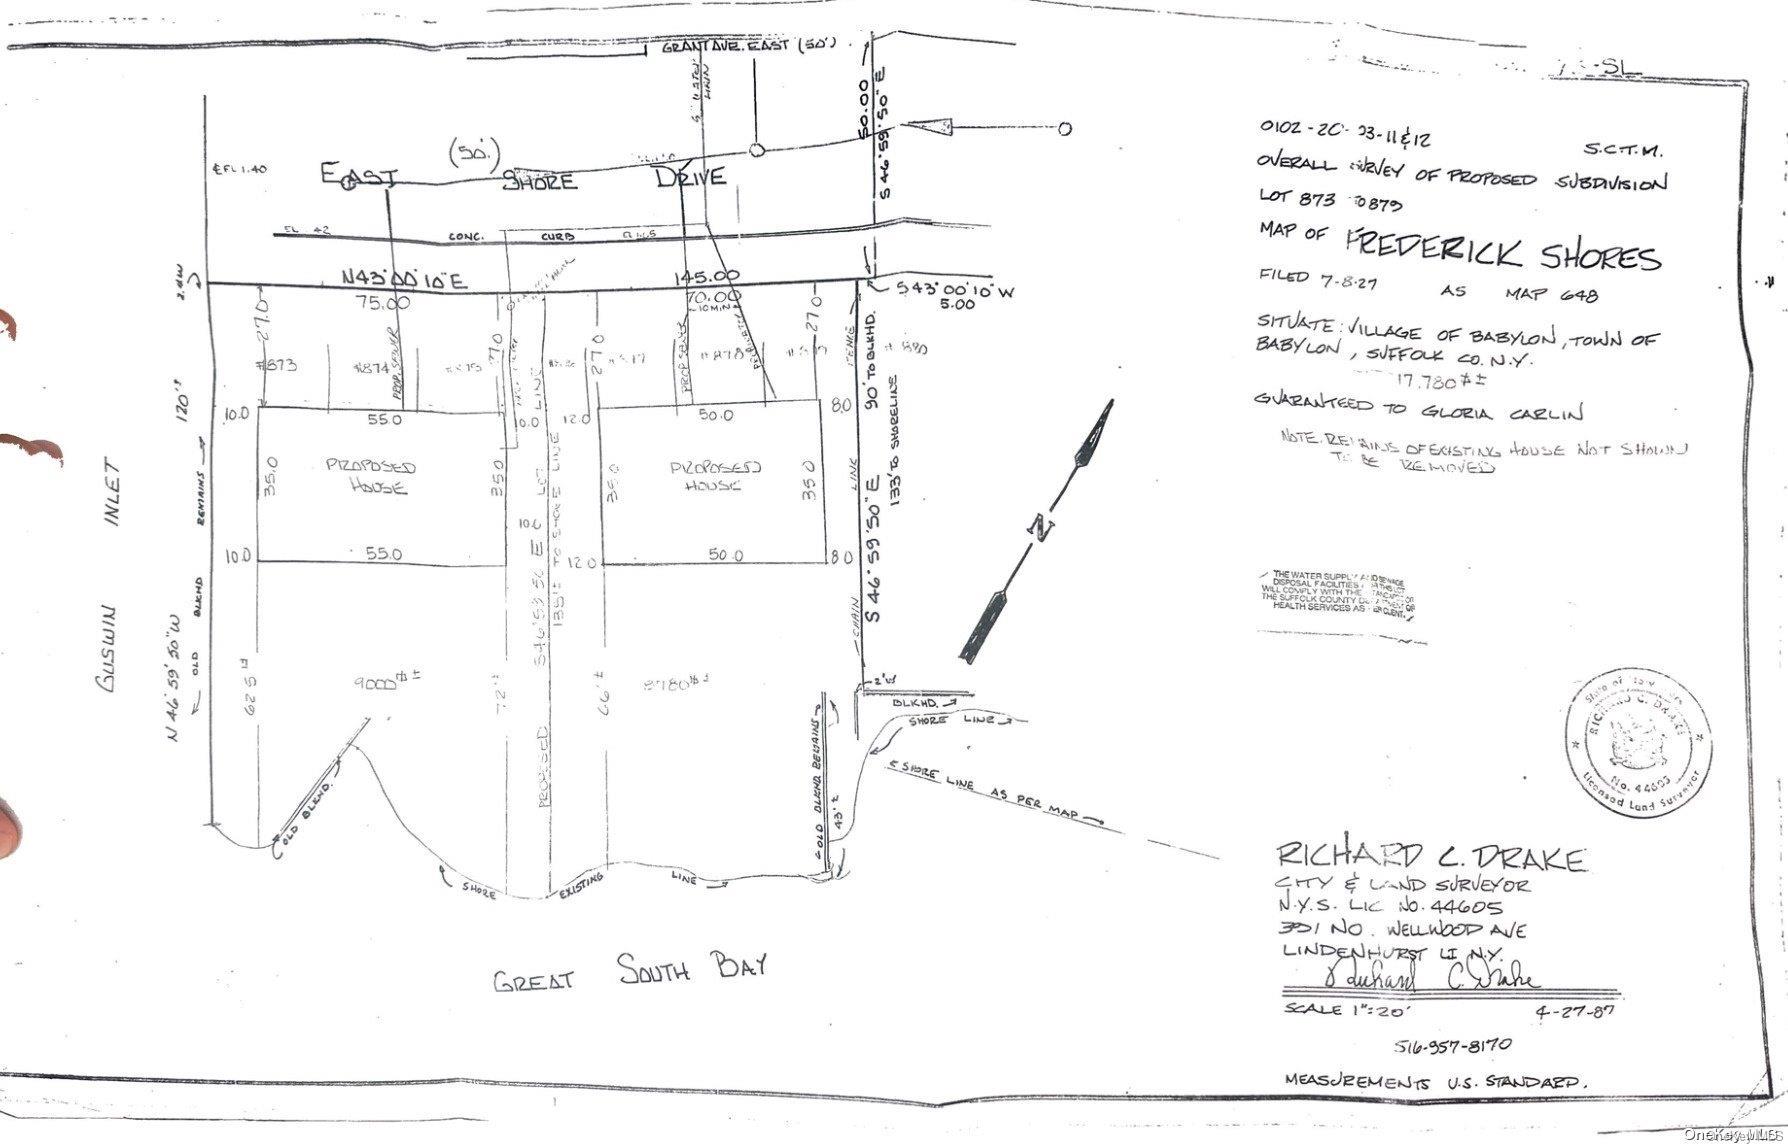 GRANT AVE. EAST (50')
-SL
50.00
S 46°59'50" E
0102-20-03-11&12
S.C.T.M.
OVERALL SURVEY OF PROPOSED SUBDIVISION
LOT 873 TO 879
MAP OF FREDERICK SHORES
FILED 7-8-27 AS MAP 648
SITUATE: VILLAGE OF BABYLON, TOWN OF
BABYLON, SUFFOLK CO. N.Y.
17,780 #±
GUARANTEED TO GLORIA CARLIN
NOTE. REMAINS OF EXISTING HOUSE NOT SHOWN
TO BE REMOVED
THE WATER SUPPLY AND SEWAGE
DISPOSAL FACILITIES
WILL COMPLY WITH THE
THE SUFFOLK COUNTY
HEALTH SERVICES AS
RICHARD C. DRAKE
No. 44605
Licensed Land Surveyor
RICHARD C. DRAKE
CITY & LAND SURVEYOR
N.Y.S. LIC NO. 44605
391 NO. WELLWOOD AVE
LINDENHURST LI N.Y.
Richard C. Drake
SCALE 1"=20' 4-27-87
516-957-8170
MEASUREMENTS U.S. STANDARD.
EL 1.40
(50')
EAST SHORE DRIVE
CONC. CURB
N43°00'10"E 145.00
S43°00'10"W
5.00
75.00 70.00
27.0 27.0 27.0 27.0
#873 #874 #878 # 880
PROP. SEWER
10.0 55.0 12.0 50.0 8.0
35.0 35.0 35.0 35.0
PROPOSED
HOUSE
PROPOSED
HOUSE
10.0 55.0 12.0 50.0 8.0
10.0
120'±
OLD BLKHD REMAINS
N 46°59'50"W
GUSWIN INLET
62.5± 72'± 66'±
9000#± 8780#±
PROPOSED
S46°59'50" E LOT LINE
135'± TO SHORE LINE
CHAIN LINK FENCE
S 46°59'50" E
90' TO BLKHD.
133' TO SHORELINE
N
BLKHD.
SHORE LINE
SHORE LINE AS PER MAP
OLD BLKHD REMAINS
43'±
OLD BLKHD.
SHORE EXISTING LINE
GREAT SOUTH BAY
OneKey MLS